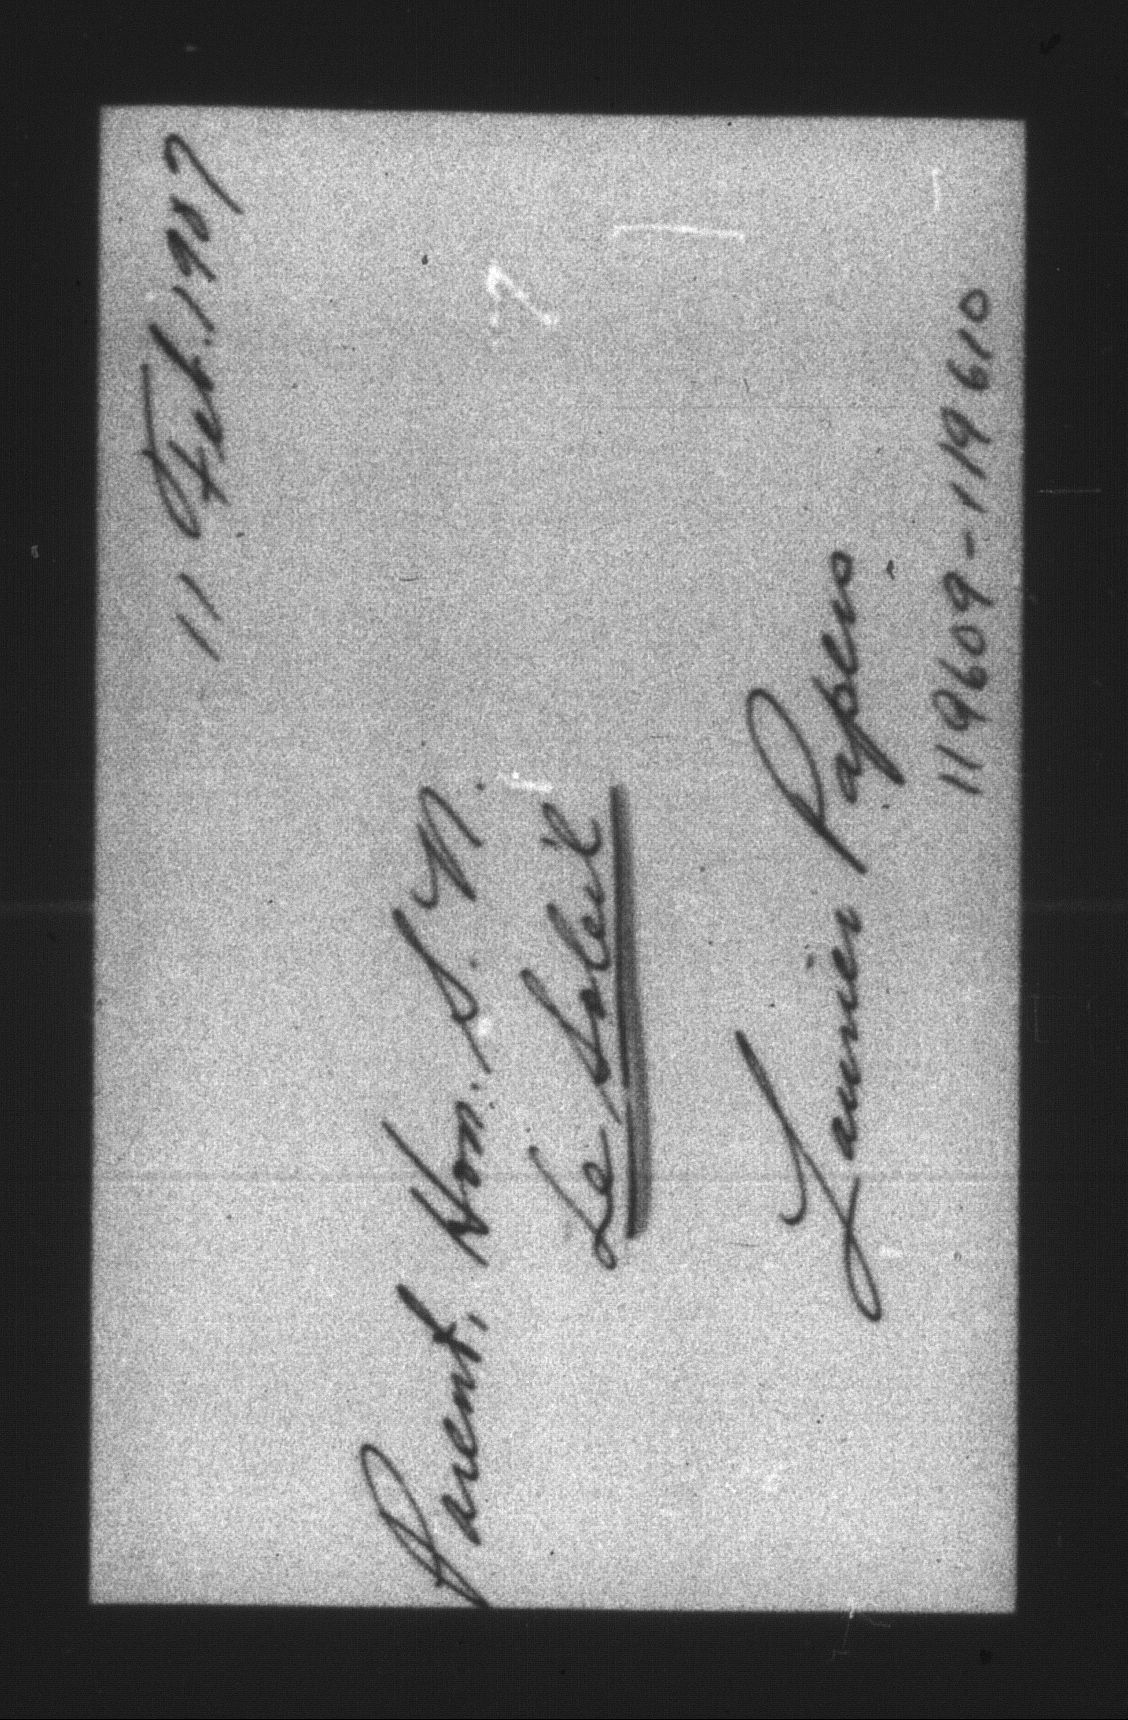 11 Feb. 1907
Parent, Hon. S. N.
Le Soleil
Laurier Papers
119609-119610